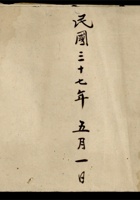 民國三十七年 五月一日